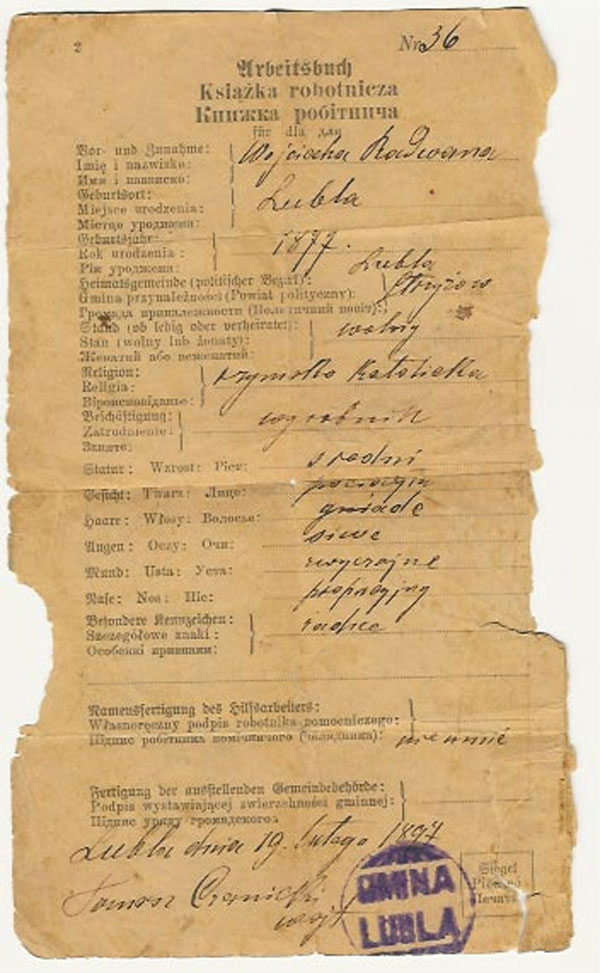 2
Nr 36
Arbeitsbuch
Książka robotnicza
Книжка робітнича
für dla для
Vor- und Zunahme:
Imię i nazwisko:
Имя і назвиско:
Wojciecha Radwana
Geburtsort:
Miejsce urodzenia:
Містце уродженя:
Lubla
Geburtsjahr:
Rok urodzenia :
Рік уродженя:
1877.
Heimatsgemeinde (politischer Bezirk):
Gmina przynależności (Powiat polityczny):
Громада приналежности (Политичний повіт):
Lubla
Strzyżow
Stand (ob ledig oder verheiratet):
Stan (wolny lub żonaty):
Жонатий або нежонатий:
wolny
Religion:
Religia:
Віроисповіданье:
rzymsko katolicka
Beschäftigung:
Zatrudnienie:
Занятє:
wyrobnik
Statur: Wzrost: Ріст:
sredni
Gesicht: Twarz: Лице:
pociągła
Haare: Włosy: Волосье:
gniade
Augen: Oczy: Очи:
siwe
Mund: Usta: Уста:
zwyczajne
Nase: Nos: Ніс:
Besondere Kennzeichen:
Szczegółowe znaki :
Особенкі признаки:
żadne
Namensfertigung des Hilfsarbeiters:
Własnoręczny podpis robotnika pomocniczego:
Підпис робітника помічничого
nie umié
Fertigung der ausstellenden Gemeindebehörde:
Podpis wystawiającej zwierzchności gminnej:
Підпис уряду громадского:
Lubla dnia 19. lutego 1897
Tomasz
wójt
GMINA
LUBLA
Siegel
Pieczęć
Печать